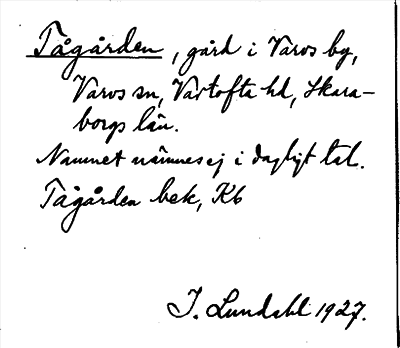 Tågården, gård i Varos by,
Varos sn, Vartofta hd, Skara-
borgs län.
Namnet nämnes ej i dagligt tal.
Tågården bek, Kb
I. Lundahl 1927.